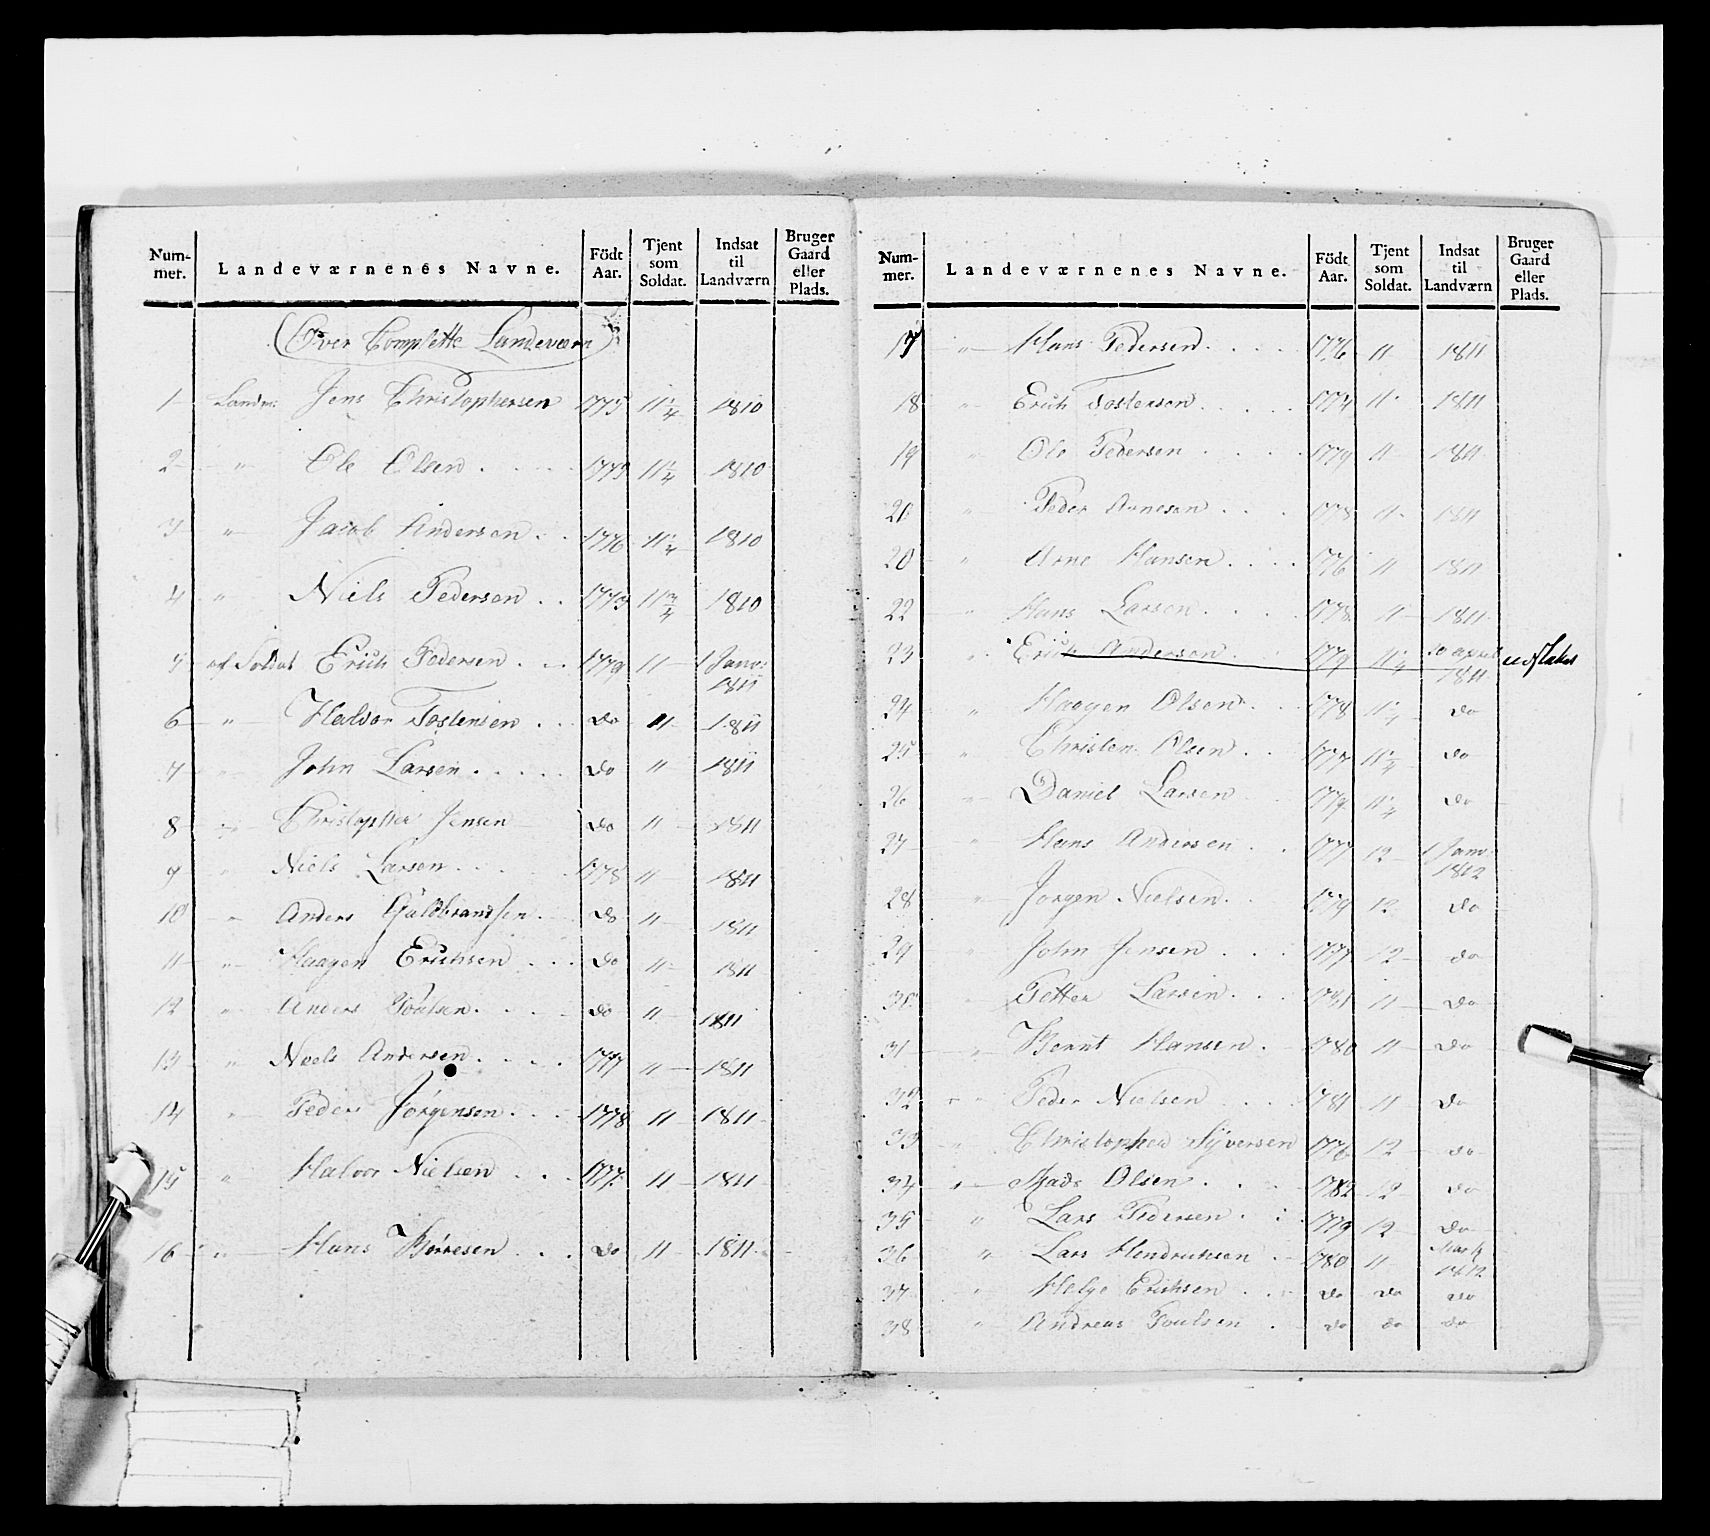 Num-mer. Landeværnenes Navne. Födt Aar. Tjent som Soldat. Indsat til Landværn Bruger Gaard eller Plads.
(Over Complette Landeværn)
1 Landv: Jens Christophersen 1775 11 1/4 1810
2 " Ole Olsen 1775 11 1/4 1810
3 " Jacob Andersen 1776 11 1/4 1810
4 " Niels Pedersen 1775 11 3/4 1810
5 af Soldat Erich Pedersen 1779 11 1 Janv: 1811
6 " Halvor Tostensen do 11 1811
7 " John Larsen do 11 1811
8 " Christopher Jensen do 11 1811
9 " Niels Larsen 1778 11 1811
10 " Anders Guldbrandsen do 11 1811
11 " Haagen Erichsen do 11 1811
12 " Anders Poulsen do 11 1811
13 " Niels Andersen 1777 11 1811
14 " Peder Jörgensen 1778 11 1811
15 " Halvor Nielsen 1777 11 1811
16 " Hans Börresen do 11 1811
Num-mer. Landeværnenes Navne. Födt Aar. Tjent som Soldat. Indsat til Landværn Bruger Gaard eller Plads.
17 " Hans Pedersen 1776 11 1811
18 " Erich Tostensen 1774 11 1811
19 " Ole Pedersen 1779 11 1811
20 " Peder Arnesen 1778 11 1811
20 " Arne Hansen 1776 11 1811
22 " Hans Larsen 1778 11 1811
23 " Erich Andersen 1779 11 1/4 20 april 1811
24 " Haagen Olsen 1778 11 1/4 do
25 " Christen Olsen 1777 11 1/4 do
26 " Daniel Larsen 1779 11 1/4 do
27 " Hans Andersen 1777 12 1 Janv: 1812
28 " Jörgen Nielsen 1779 12 do
29 " John Jensen 1777 12 do
30 " Petter Larsen 1781 11 do
31 " Bernt Hansen 1780 11 do
32 " Peder Nielsen 1781 11 do
33 " Christopher Syversen 1776 12 do
34 " Mads Olsen 1782 12 do
35 " Lars Pedersen 1779 12 do
36 " Lars Hendrichsen 1780 11 Marty 1812
37 " Helge Erichsen do do do
38 " Andreas Poulsen do do do